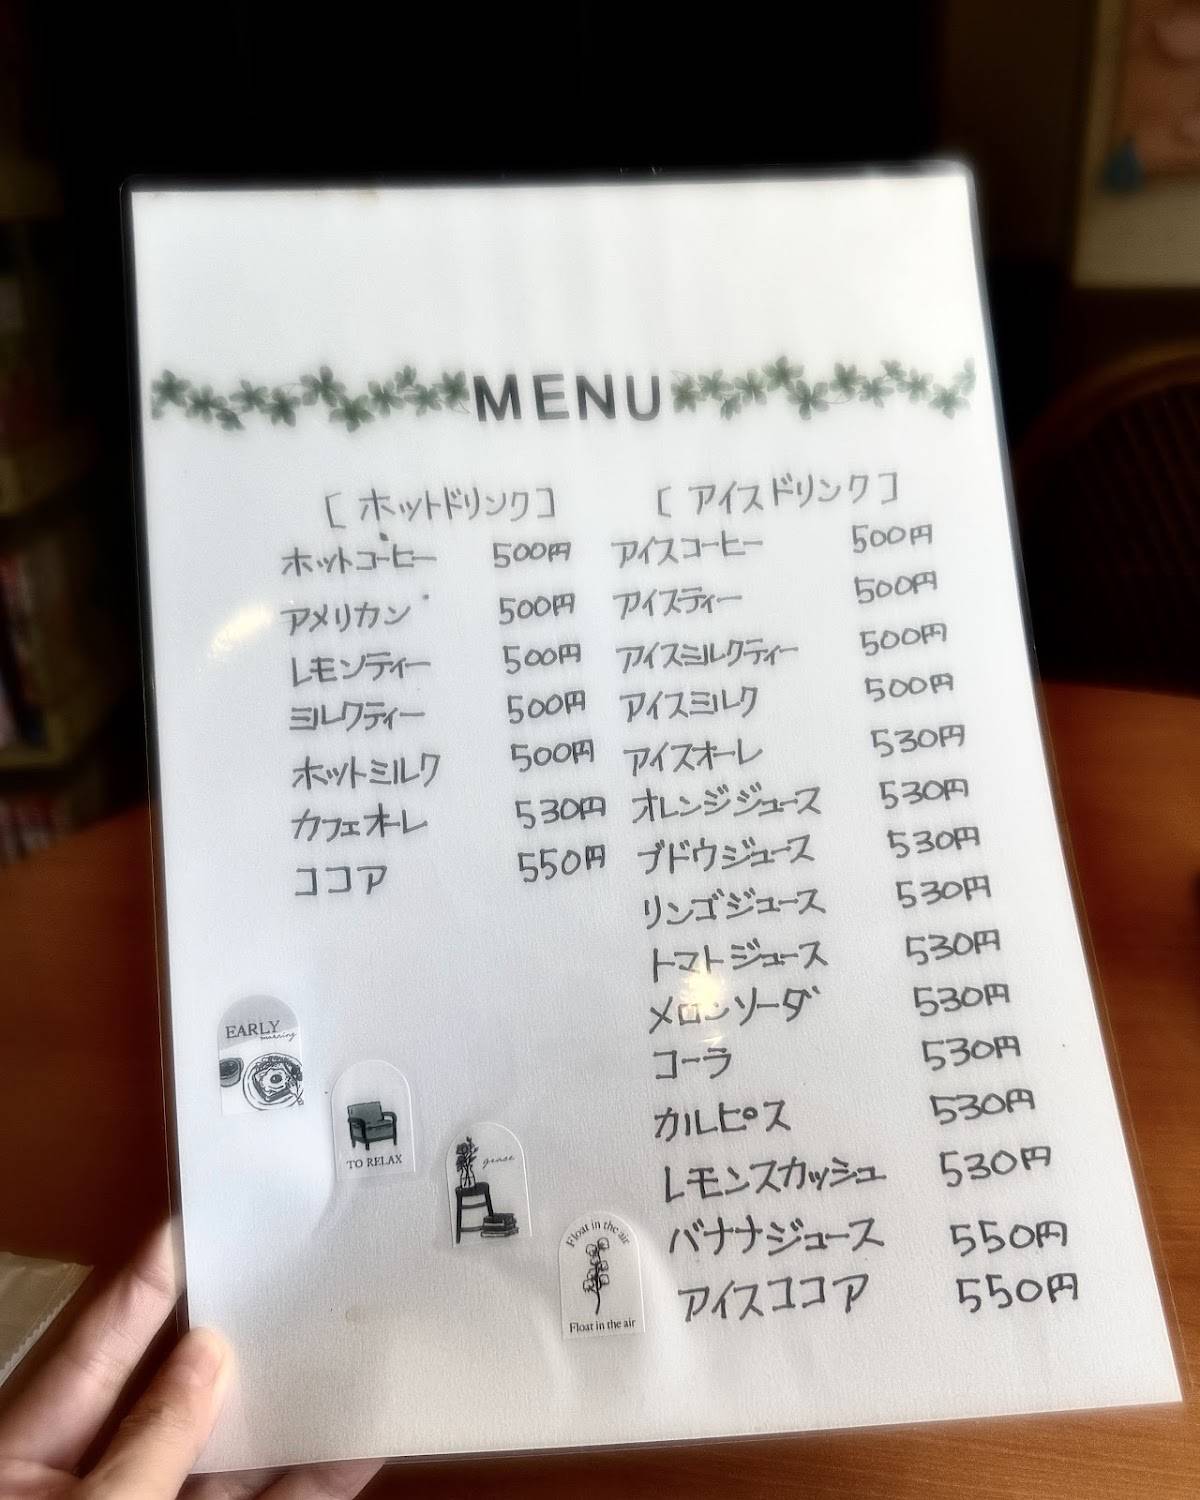 MENU
[ホットドリンク]
ホットコーヒー 500円
アメリカン 500円
レモンティー 500円
ミルクティー 500円
ホットミルク 500円
カフェオーレ 530円
ココア 550円
[アイスドリンク]
アイスコーヒー 500円
アイスティー 500円
アイスミルクティー 500円
アイスミルク 500円
アイスオーレ 530円
オレンジジュース 530円
ブドウジュース 530円
リンゴジュース 530円
トマトジュース 530円
メロンソーダ 530円
コーラ 530円
カルピス 530円
レモンスカッシュ 530円
バナナジュース 550円
アイスココア 550円
EARLY
morning
TO RELAX
Float in the air
Float in the air